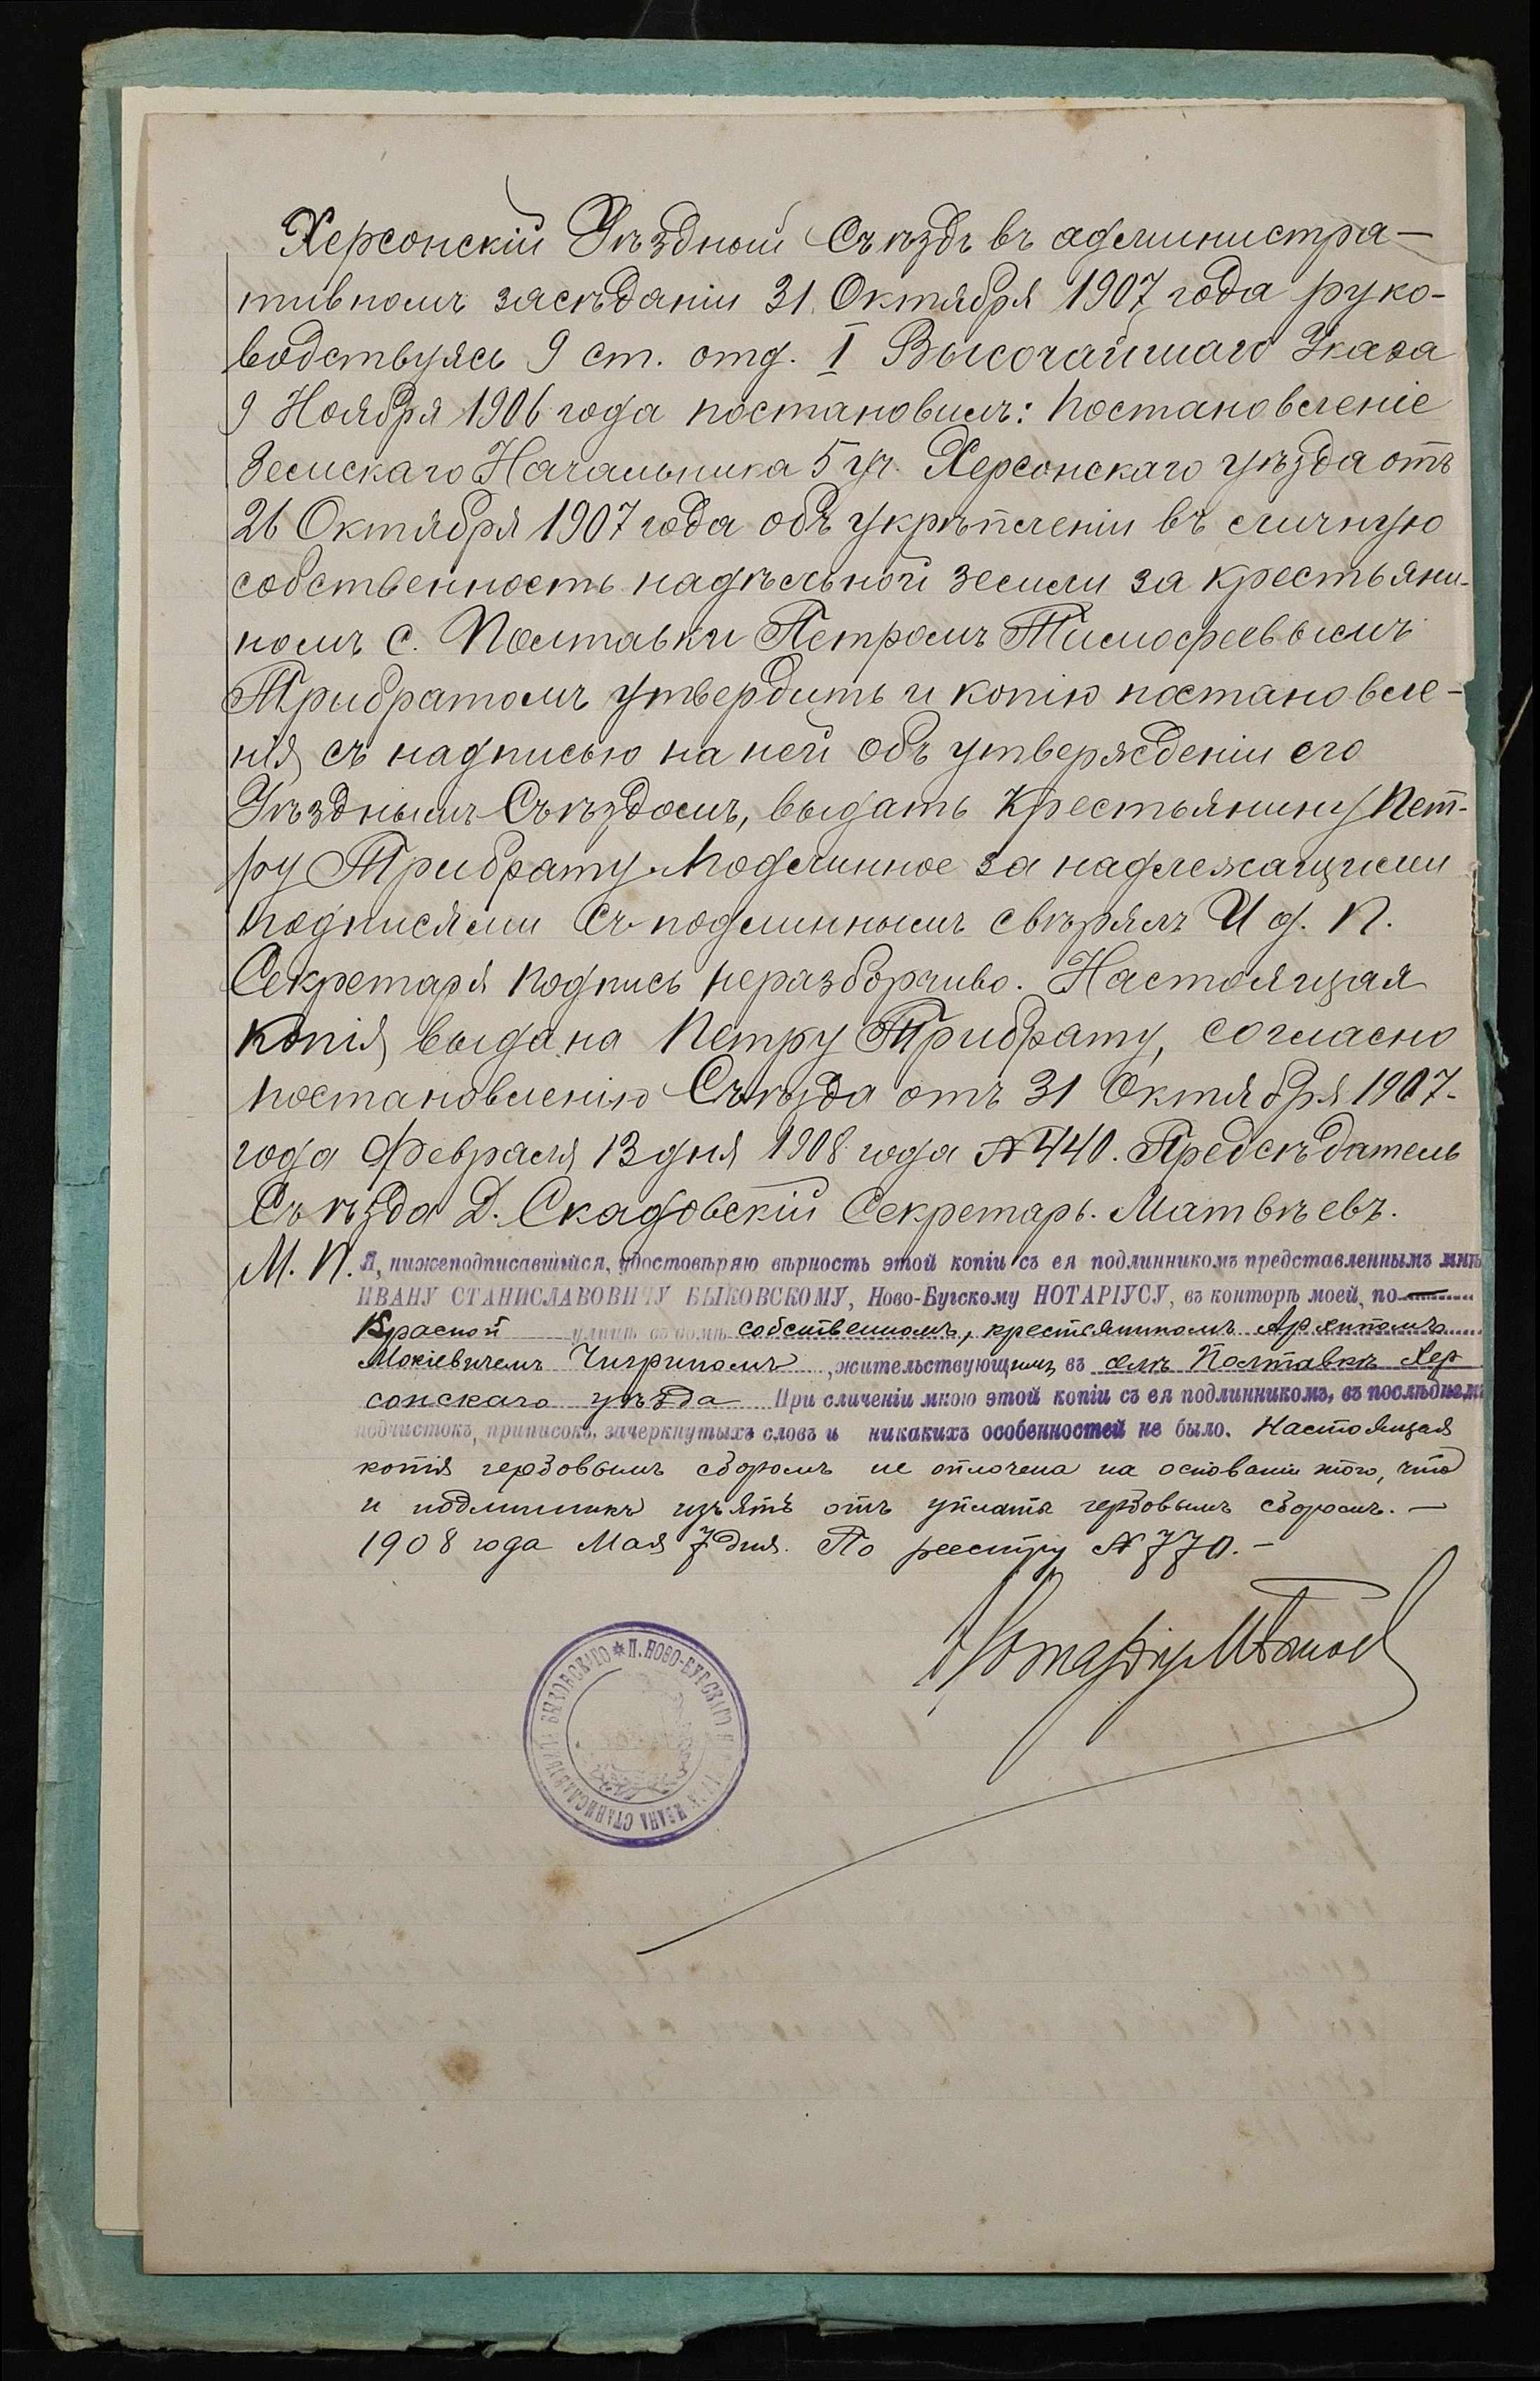 Херсонскій Уѣздный Съѣздъ въ администра-
тивномъ засѣданіи 31 Октября 1907 года руко-
водствуясь 9 ст. отд. I Высочайшаго Указа
9 Ноября 1906 года постановилъ: Постановленіе
Земскаго Начальника 5 уч. Херсонскаго уѣзда отъ
26 Октября 1907 года объ укрѣпленіи въ личную
собственность надѣльной земли за крестьяни-
номъ с. Полтавки Петромъ Тимофеевымъ
Трибратомъ утвердить и копію постановле-
нія съ надписью на ней объ утвержденіи его
Уѣзднымъ Съѣздомъ, выдать крестьянину Пет-
ру Трибрату. Подлинное за надлежащими
подписями Съ подлиннымъ свѣрялъ И д. П.
Секретаря подпись неразборчиво. Настоящая
копія выдана Петру Трибрату, согласно
постановленію Съѣзда отъ 31 Октября 1907-
года Февраля 13 дня 1908 года № 440. Предсѣдатель
Съѣзда Д. Скадовскій Секретарь. Матвѣевъ.
М. П. Я, нижеподписавшійся, удостовѣряю вѣрность этой копіи съ ея подлинникомъ представленнымъ мнѣ
ИВАНУ СТАНИСЛАВОВИЧУ БЫКОВСКОМУ, Ново-Бугскому НОТАРІУСУ, въ конторѣ моей, по
Красной улицѣ въ домѣ собственномъ, крестьяниномъ
Мокіевичемъ Чигриномъ, жительствующимъ въ селѣ Полтавкѣ Хер
сонскаго уѣзда При сличеніи мною этой копіи съ ея подлинникомъ, въ послѣднемъ
подчистокъ, приписокъ, зачеркнутыхъ словъ и никакихъ особенностей не было. Настоящая
копія гербовымъ сборомъ не оплочена на основаніи того, что
и подлинникъ изъятъ отъ уплаты гербовымъ сборомъ. —
1908 года Мая 7 дня. По реестру № 770. —
Нотаріусъ
П. НОВО-БУГСКІГО НОТАРІУСА ИВАНА СТАНИСЛАВОВИЧА БЫКОВСКІГО